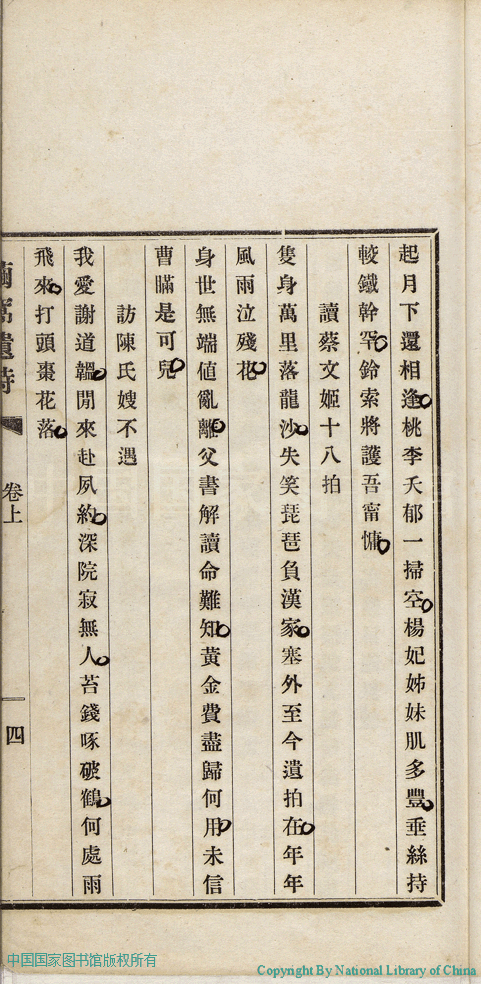 起月下還相逢桃李夭郁一掃空楊妃姊妹肌多豐垂絲持
較鐵幹罕鈴索將護吾甯慵
讀蔡文姬十八拍
隻身萬里落龍沙失笑琵琶負漢家塞外至今遺拍在年年
風雨泣殘花
身世無端値亂離父書解讀命難知黃金費盡歸何用未信
曹瞞是可兒
訪陳氏嫂不遇
我愛謝道韞閒來赴夙約深院寂無人苔錢啄破鶴何處雨
飛來打頭棗花落
遺詩
卷上
四
中国国家图书馆版权所有
Copyright By National Library of China